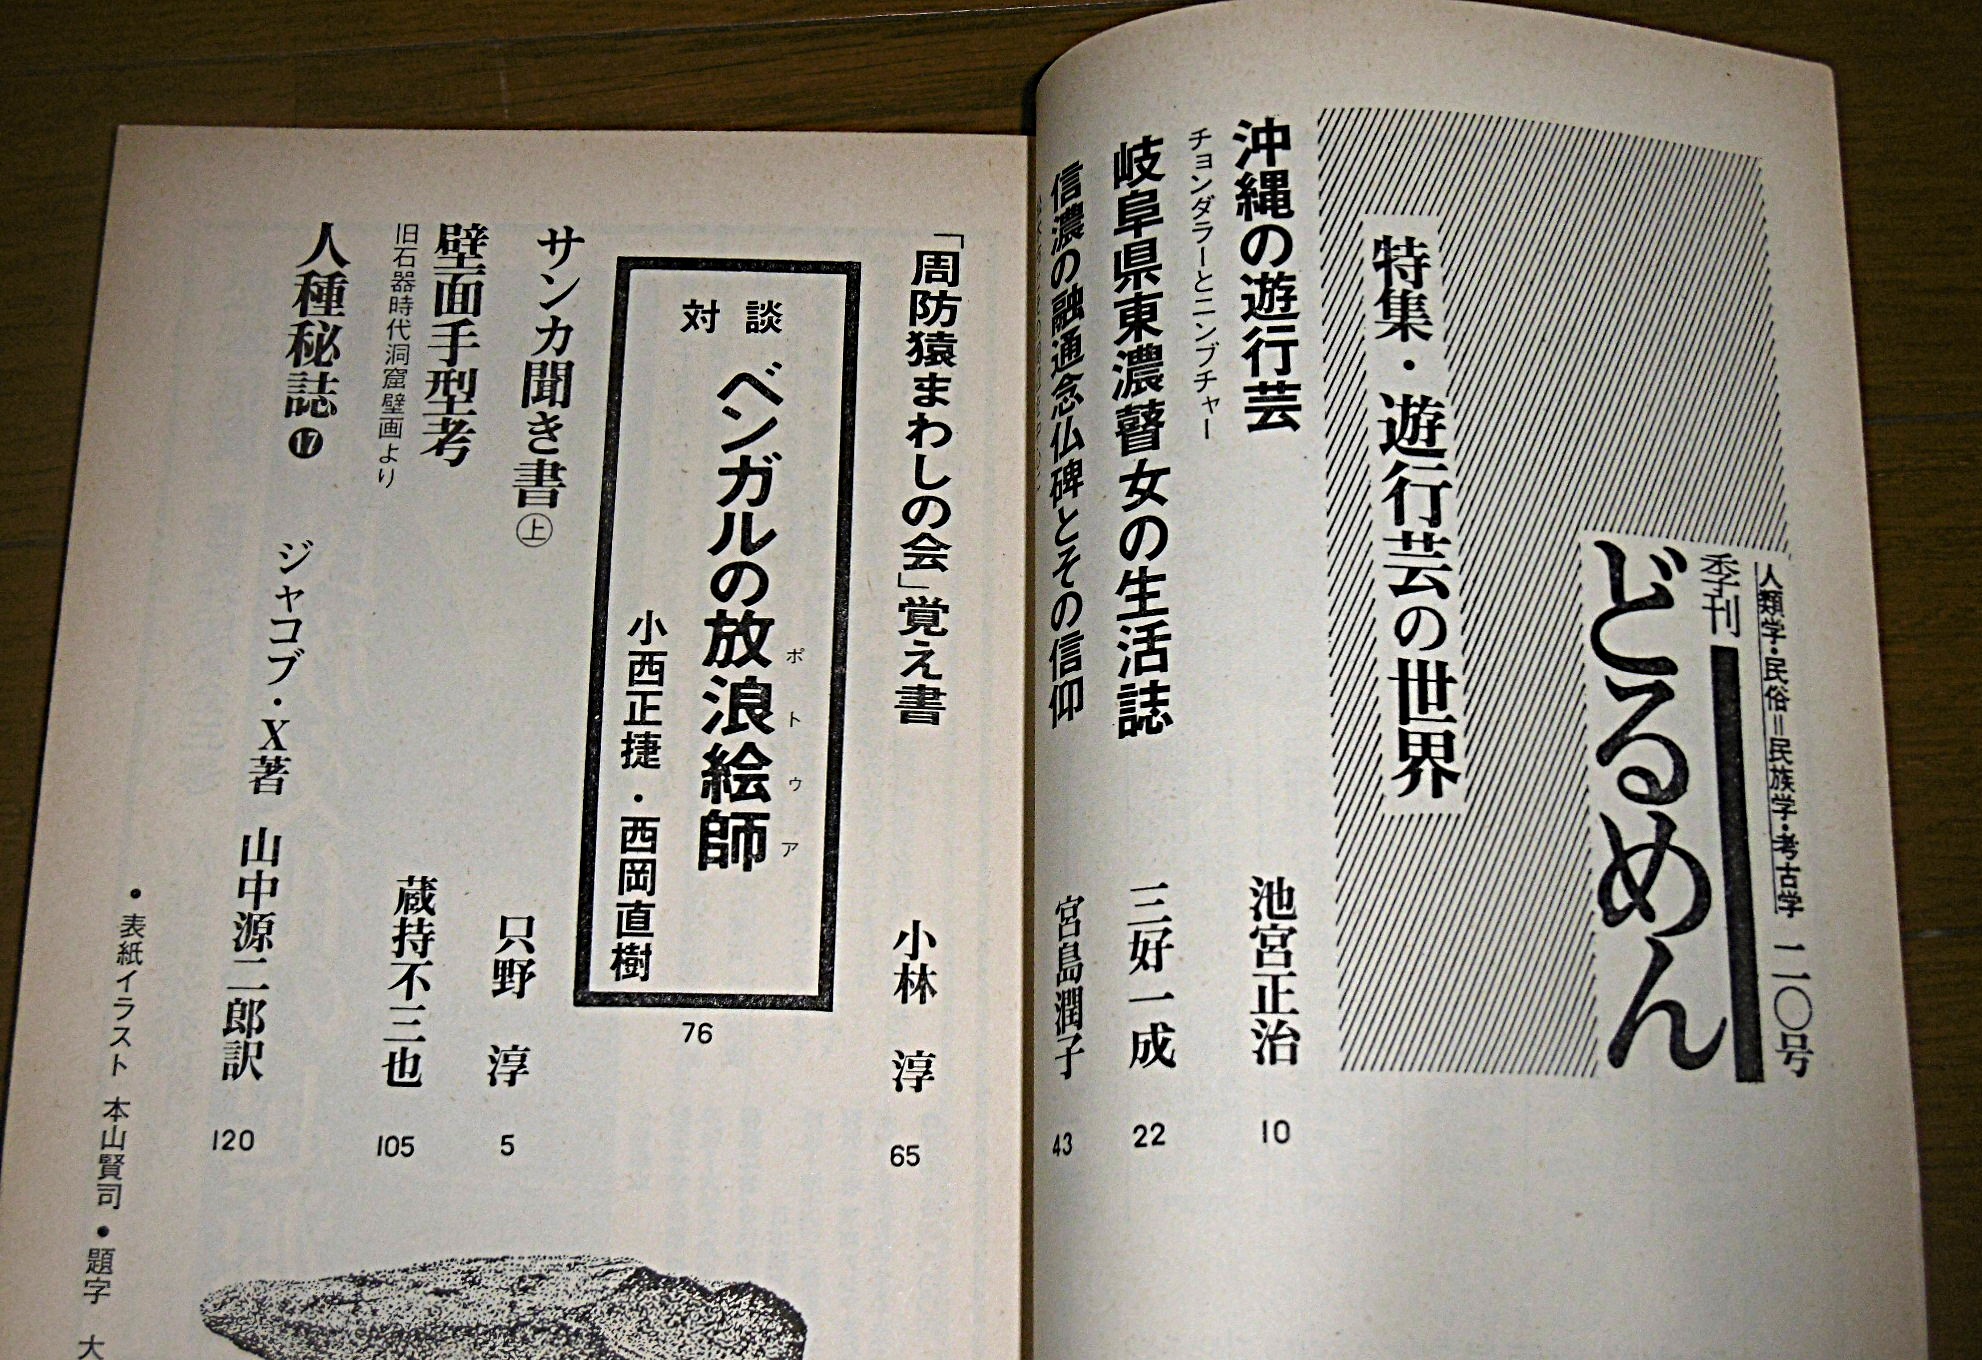 人類学・民俗＝民族学・考古学
二〇号
季刊
どるめん
特集・遊行芸の世界
沖縄の遊行芸
チョンダラーとニンブチャー
池宮正治
10
岐阜県東濃瞽女の生活誌
三好一成
22
信濃の融通念仏碑とその信仰
宮島潤子
43
「周防猿まわしの会」覚え書
小林 淳
65
対談
ベンガルの放浪絵師
ポトゥア
小西正捷・西岡直樹
76
サンカ聞き書㊤
只野 淳
5
壁面手型考
旧石器時代洞窟壁画より
蔵持不三也
105
人種秘誌⓱
ジャコブ・X著 山中源二郎訳
120
●表紙イラスト 本山賢司●題字 大